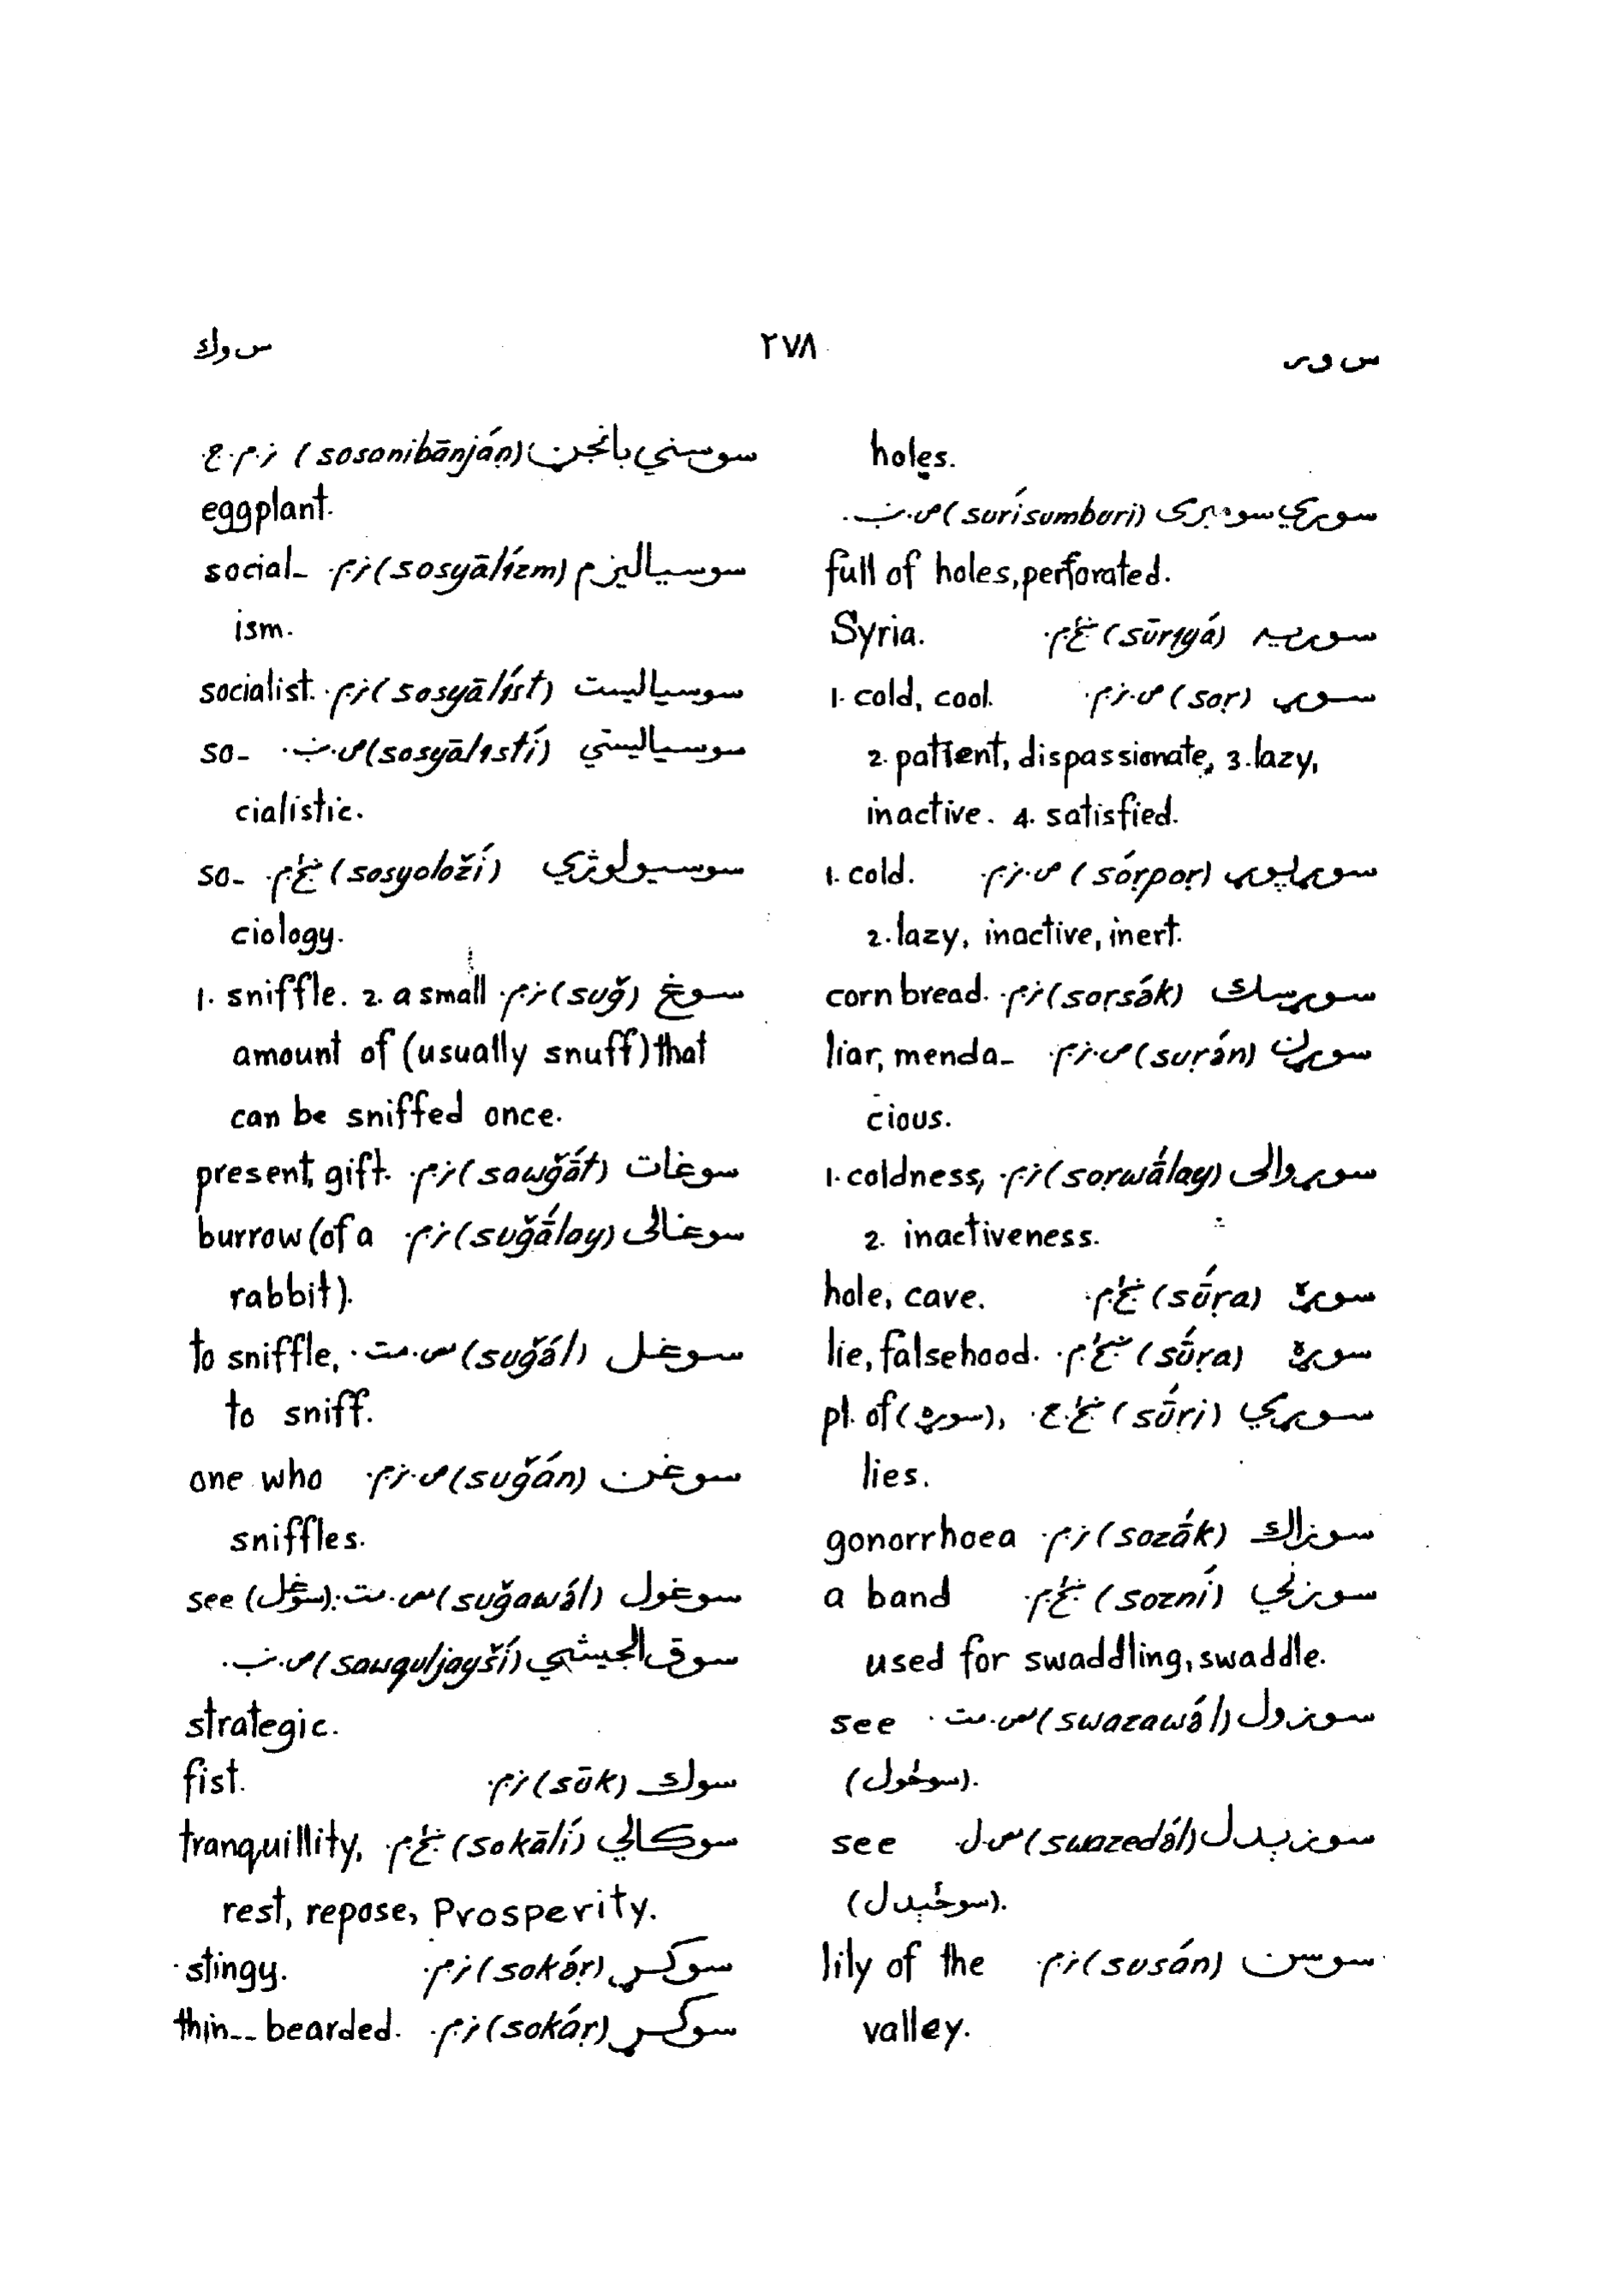 س ور
٢٧٨
س وك
holes.
سوري سومبرى (surísumburi) ص.ن.
full of holes, perforated.
سوريه (sūriyá) ن.ځ.م. Syria.
سوړ (soṛ) ص.ن.م. 1. cold, cool.
2. patient, dispassionate, 3. lazy,
inactive. 4. satisfied.
سوړپوړ (sóṛpoṛ) ص.ن.م. 1. cold.
2. lazy, inactive, inert.
سوړسك (soṛsák) ن.م. corn bread.
سوړن (suṛán) ص.ن.م. liar, menda-
cious.
سوړوالى (soṛwā́lay) ن.م. 1. coldness,
2. inactiveness.
سوړه (sū́ṛa) hole, cave.
سوړه (sū́ṛa) lie, falsehood.
سوړي (sū́ṛi) pl. of (سوړه),
lies.
سوزاك (sozā́k) ن.م. gonorrhoea
سوزني (sozní) a band
used for swaddling, swaddle.
سوزول (swazawə́l) see
(سوځول).
سوزېدل (swazedə́l) see
(سوځېدل).
سوسن (susán) ن.م. lily of the
valley.
سوسني بانجن (sosanibānján) ن.م.ج
eggplant.
سوسياليزم (sosyālízm) ن.م. social-
ism.
سوسياليست (sosyālíst) ن.م. socialist.
سوسياليستي (sosyālistí) ص.ن. so-
cialistic.
سوسيولوژي (sosyoloží) so-
ciology.
سوغ (suğ) ن.م. 1. sniffle. 2. a small
amount of (usually snuff) that
can be sniffed once.
سوغات (sawğā́t) ن.م. present, gift.
سوغالى (suğā́lay) ن.م. burrow (of a
rabbit).
سوغل (suğə́l) to sniffle,
to sniff.
سوغن (suğán) ص.ن.م. one who
sniffles.
سوغول (suğawə́l) see (سوغل)
سوق الجيشي (sawquljayší) ص.ن.
strategic.
سوك (sūk) ن.م. fist.
سوكالي (sokālí) tranquillity,
rest, repose, Prosperity.
سوكړ (sokə́ṛ) ن.م. stingy.
سوكړ (sokáṛ) ن.م. thin-- bearded.